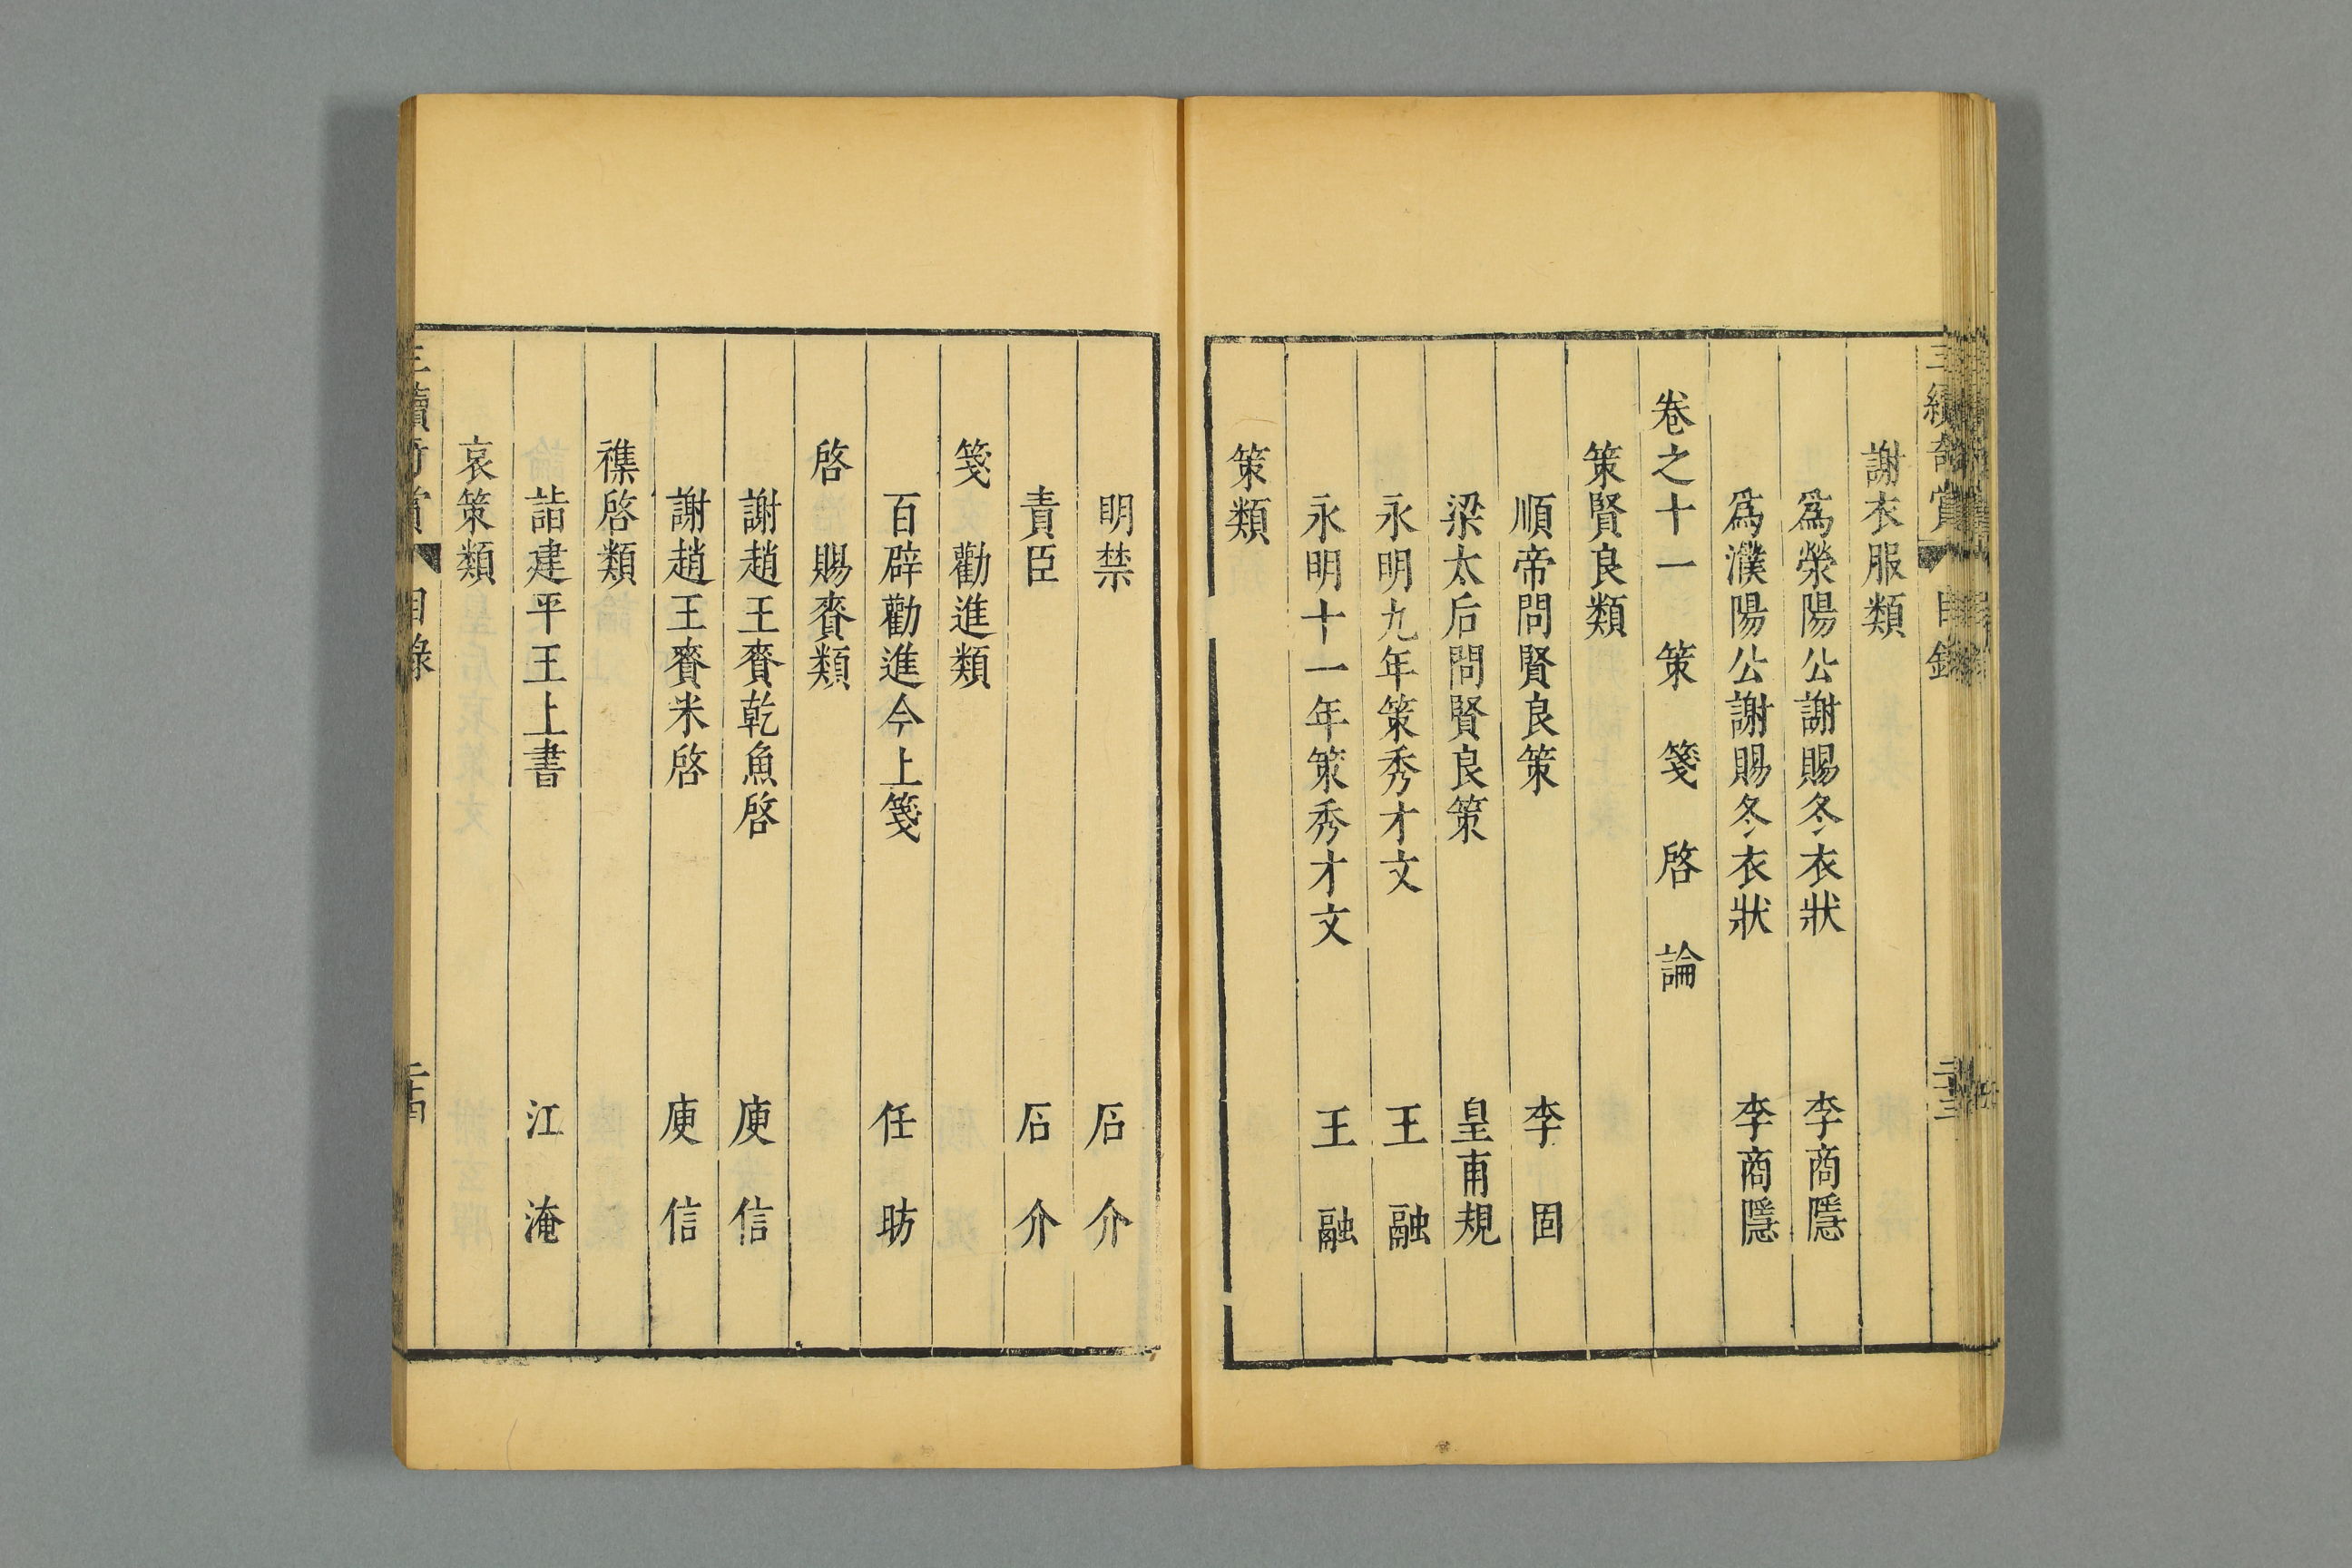 三續奇賞 目錄 二十三
謝衣服類
爲滎陽公謝賜冬衣狀 李商隱
爲濮陽公謝賜冬衣狀 李商隱
卷之十一 策 箋 啓 論
策賢良類
順帝問賢良策 李固
梁太后問賢良策 皇甫規
永明九年策秀才文 王融
永明十一年策秀才文 王融
策類
明禁 石介
責臣 石介
箋 勸進類
百辟勸進今上箋 任昉
啓 賜賚類
謝趙王賚乾魚啓 庾信
謝趙王賚米啓 庾信
襍啓類
詣建平王上書 江淹
哀策類
三續奇賞 目錄 二十四